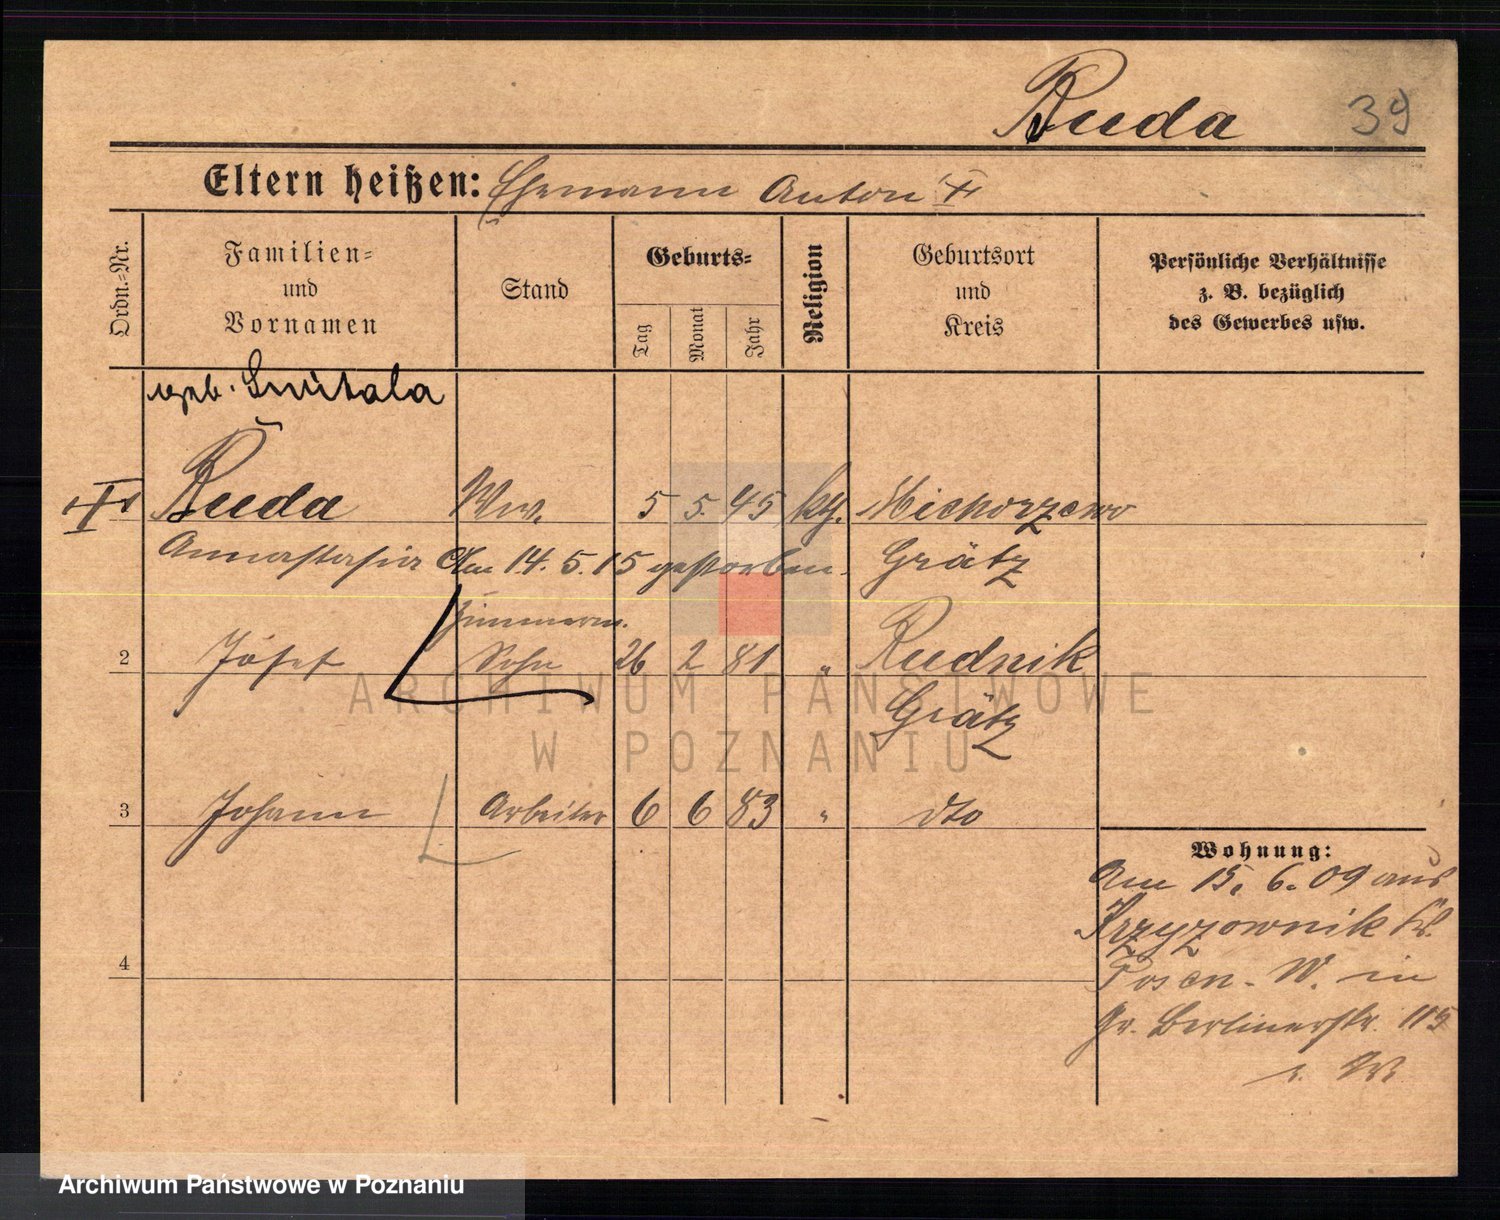 Buda 39
Eltern heißen: Ehemann Anton
Ordn.-Nr.
Familien-
und
Vornamen
Stand
Geburts-
Tag
Monat
Jahr
Religion
Geburtsort
und
Kreis
Persönliche Verhältnisse
z. B. bezüglich
des Gewerbes usw.
geb.
Buda Ww. 5 5. 45 Michorzewo
Annastasia Am 14. 5. 15 gestorben. Grätz
Zimmerm.
2 Josef Sohn 26 2 81 " Rudnik
Grätz
3 Johann Arbeiter 6 6 83 " dto
Wohnung:
Am 15. 6. 09 aus
Krzyzownik Kr.
Posen. W. in
Gr. Berlinerstr. 115
4
ARCHIWUM PAŃSTWOWE
W POZNANIU
Archiwum Państwowe w Poznaniu